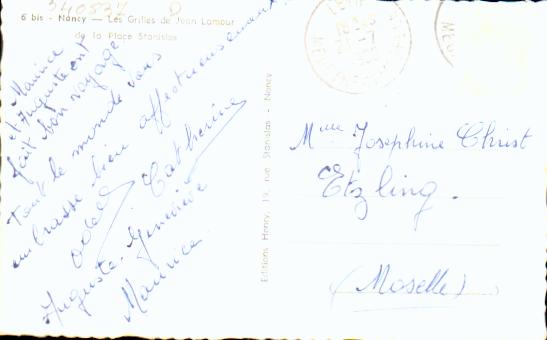 340837 D
6 bis - Nancy — Les Grilles de Jean Lamour
de la Place Stanislas
Maurice
et Auguste ont
fait bon voyage
Tout le monde vous
embrasse bien affectueusement
Odell Catherine
Auguste. Geneviève
Maurice.
Editions Henry, 19, rue Stanislas - Nancy
Mme Josephine Christ
Etzling.
(Moselle)